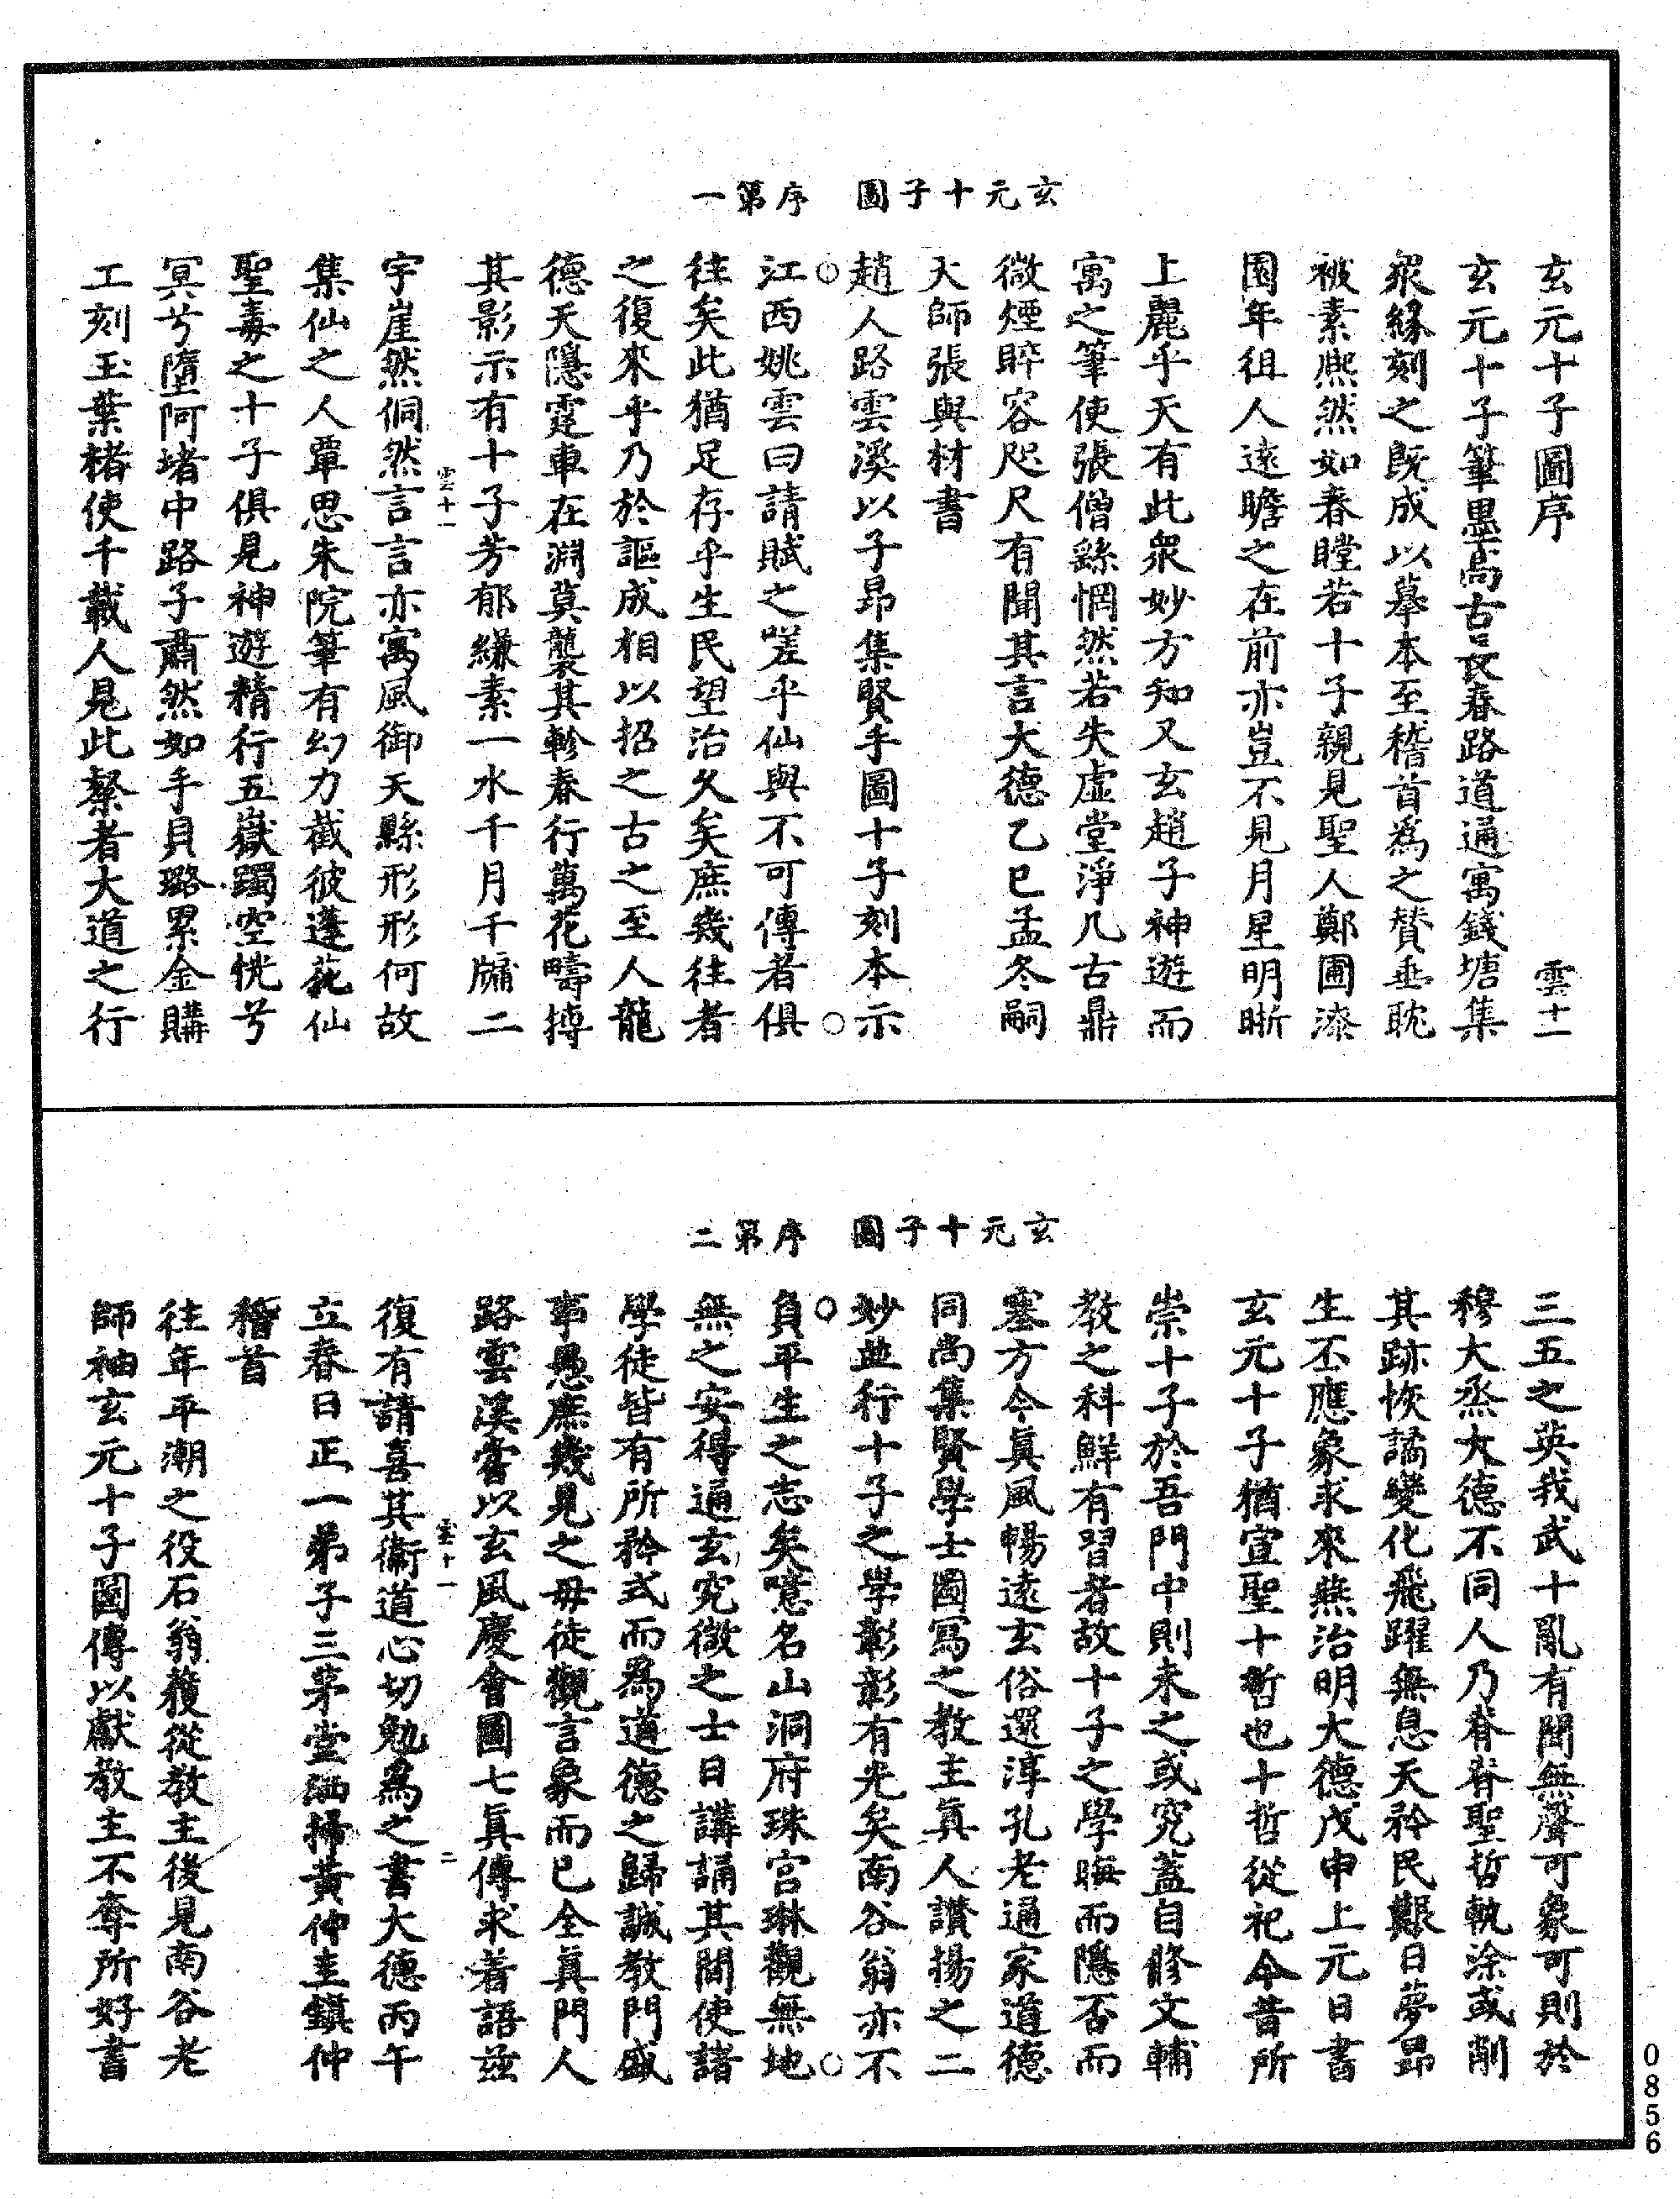 玄元十子圖　序第一
玄元十子圖序　雲十一
玄元十子筆墨高古長春路道通寓錢塘集
衆緣刻之既成以摹本至稽首爲之贊垂耽
被素熈然如春瞠若十子親見聖人鄭圃漆
園年徂人遠瞻之在前亦豈不見月星明晰
上麗乎天有此衆妙方知又玄趙子神遊而
寓之筆使張僧繇惘然若失虛堂淨几古鼎
微煙睟容咫尺有聞其言大德乙巳孟冬嗣
天師張與材書
趙人路雲溪以子昂集賢手圖十子刻本示
江西姚雲曰請賦之嗟乎仙與不可傳者俱
往矣此猶足存乎生民望治久矣庶幾往者
之復來乎乃於謳成相以招之古之至人龍
德天隱霆車在淵莫襲其軫春行萬花疇摶
其影示有十子芳郁縑素一水千月千牖二
雲十一
宇崖然侗然言言亦寓風御天縣形形何故
集仙之人覃思朱院筆有幻力截彼蓬苑仙
聖毒之十子俱見神遊精行五嶽躅空恍兮
冥兮墮阿堵中路子肅然如手貝璐累金購
工刻玉葉楮使千載人見此粲者大道之行
玄元十子圖　序第二
三五之英我武十亂有聞無聲可象可則於
穆大烝大德不同人乃脊脊聖哲執涂或削
其跡恢譎變化飛躍無息天矜民艱日夢昂
生丕應象求來燕治明大德戊申上元日書
玄元十子猶宣聖十哲也十哲從祀今昔所
崇十子於吾門中則未之或究蓋自修文輔
教之科鮮有習者故十子之學晦而隱否而
塞方今眞風暢遠玄俗還淳孔老通家道德
同尚集賢學士圖寫之教主眞人讚揚之二
妙並行十子之學彰彰有光矣南谷翁亦不
負平生之志矣噫名山洞府珠宮琳觀無地
無之安得通玄究微之士日講誦其間使諸
學徒皆有所矜式而爲道德之歸誠教門盛
事愚庶幾見之毋徒觀言象而已全眞門人
路雲溪嘗以玄風慶會圖七眞傳求着語茲
雲十一　二
復有請喜其衞道心切勉爲之書大德丙午
立春日正一弟子三茅堂洒掃黃仲圭鎮仲
稽首
往年平潮之役石翁獲從教主後見南谷老
師袖玄元十子圖傳以獻教主不奪所好書
0856